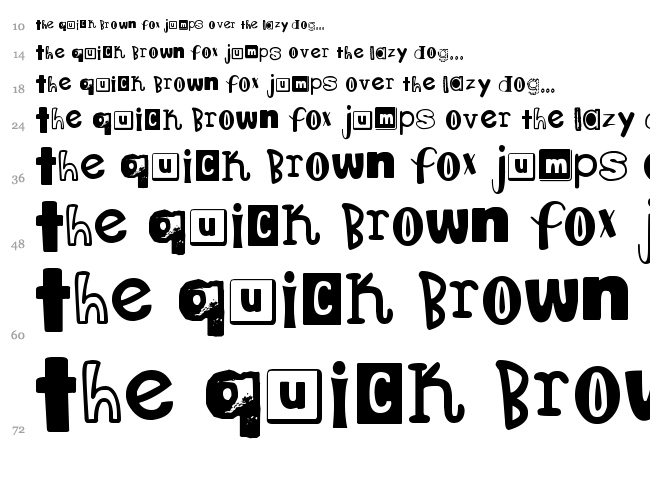 10 the quick brown fox jumps over the lazy dog...
14 the quick brown fox jumps over the lazy dog...
18 the quick brown fox jumps over the lazy dog...
24 the quick brown fox jumps over the lazy
36 the quick brown fox jumps
48 the quick brown fox j
60 the quick brown
72 the quick brow